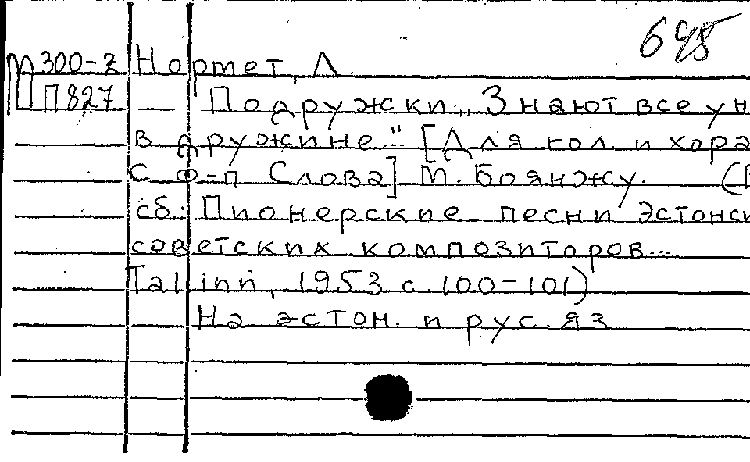 645
М300-2 Нормет, Л
П827 — Подружки „Знают все у нас
в дружине" [Для кол. и хора
с ф-п Слова] М. Боянжу. (В
сб: Пионерские песни эстонски
советских композиторов...
Tallinn, 1953 с. 100-101)
На эстон. и рус. яз